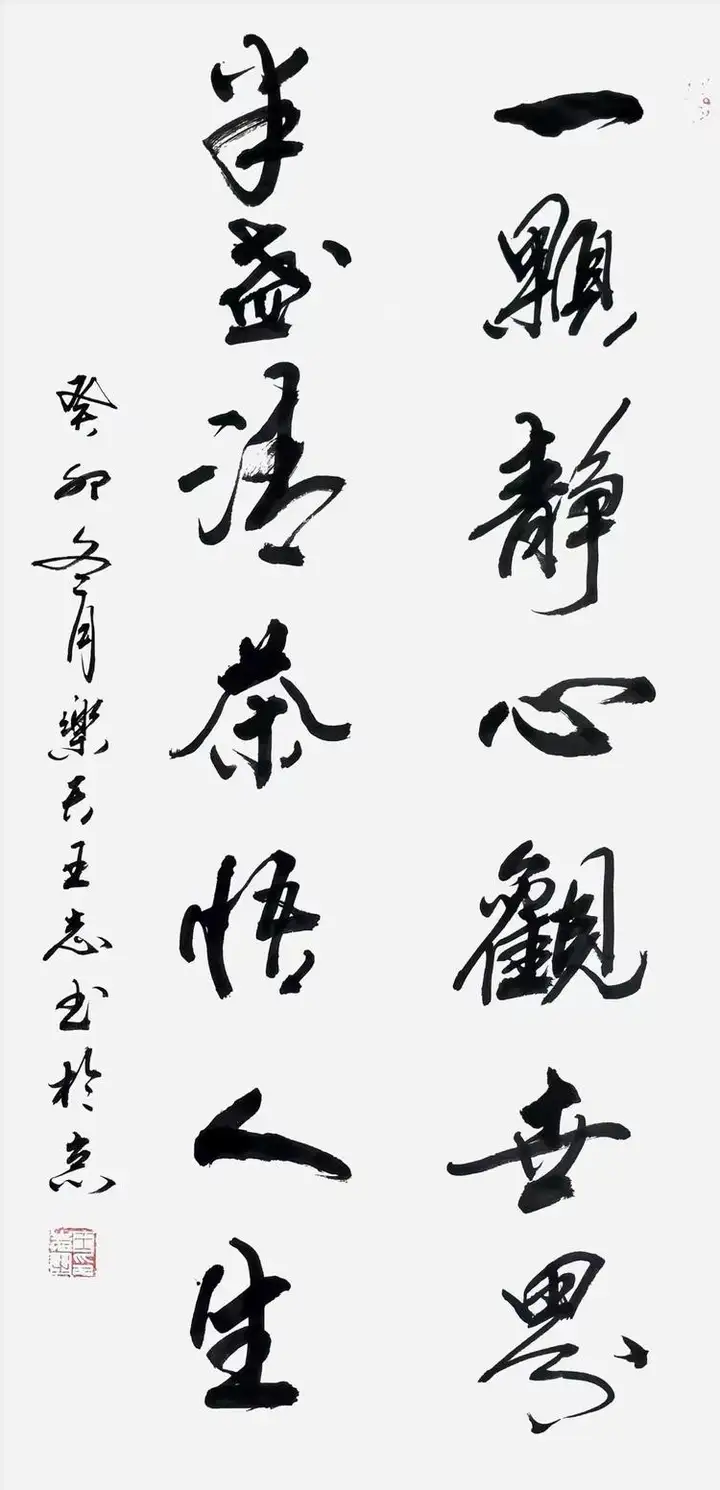 一顆靜心觀世界
半盞清茶悟人生
癸卯冬月樂天王志书於京